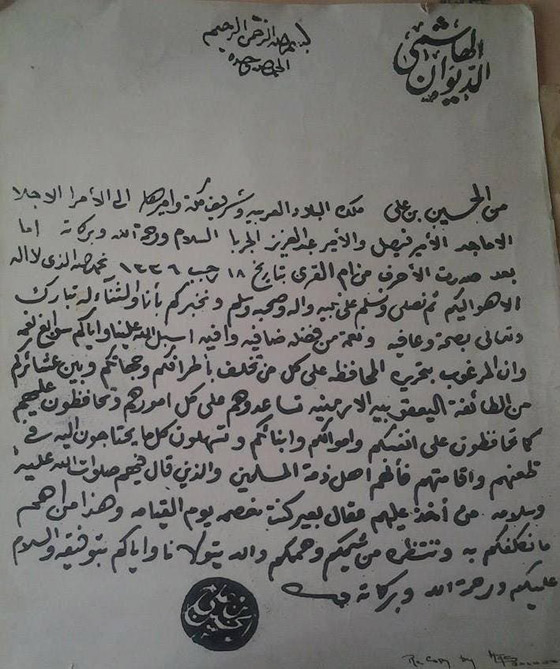 الديوان الهاشمي
بسم الله الرحمن الرحيم
الحمد لله وحده
من الحسين بن علي ملك البلاد العربية وشريف مكة واميرها الى الأمرا الاجلا
الاماجد الأمير فيصل والأمير عبدالعزيز الجربا السلام ورحمة الله وبركاته اما
بعد صدرت الأحرف من ام القرى بتاريخ ١٨ رجب ١٣٣٦ نحمد الله الذي لا اله
الا هو اليكم ثم نصلي ونسلم على نبيه واله وصحبه وسلم ونخبركم بأنا والثناء له تبارك
وتعالى بصحة وعافيه ونعمة من فضله ضافيه وافيه اسبل الله علينا واياكم سوابغ نعمه
وان المرغوب بتحرير المحافظه على كل من تخلف بأطرافكم وجهاتكم وبين عشائركم
من الطائفة اليعقوبيه الارمنيه تساعدوهم على كل امورهم وتحافظون عليهم
كما تحافظون على انفسكم واموالكم وابنائكم وتسهلون كل ما يحتاجون اليه في
ظعنهم واقامتهم فأنهم اهل ذمة المسلمين والذين قال فيهم صلوات الله عليه
وسلامه من أخذ عليهم عقال بعير كنت خصمه يوم القيامه وهذا من اهم
ما نكلفكم به وننتظره من شيمكم وهممكم والله يتولانا واياكم بتوفيقه والسلام
عليكم ورحمة الله وبركاته
الحسين بن علي